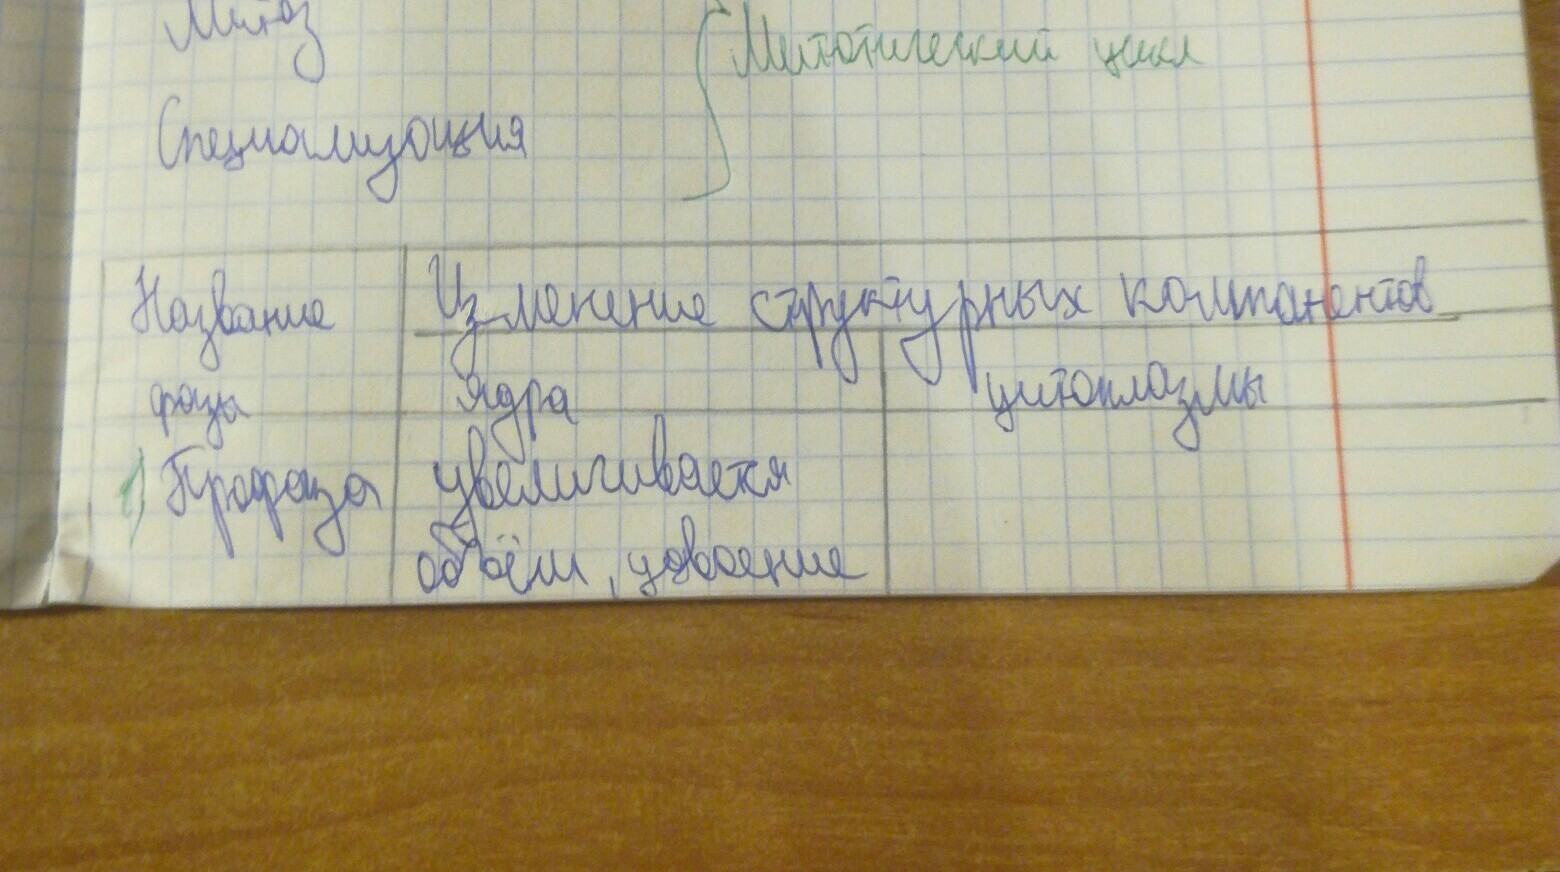 Митоз
Митотический цикл
Специализация
Название
фазы
Изменение структурных компанентов
ядра
цитоплазмы
1) Профаза
увеличивается
объём, удвоение